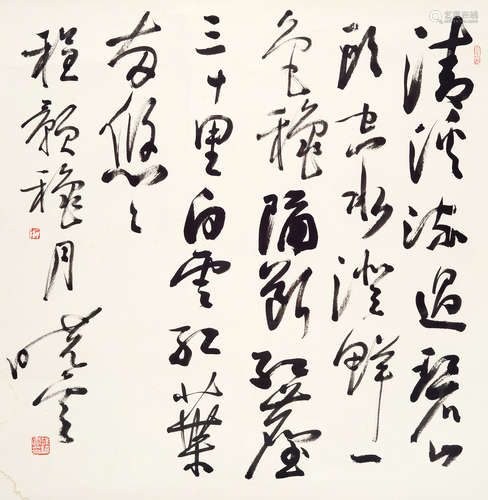 清溪流過碧山
頭空水澄鮮一
色穐隔斷紅塵
三十里白雲紅葉
兩悠々
程顥穐月 曉雲